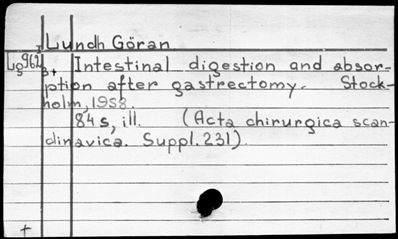 Lundh Göran
Intestinal digestion and absor-
ption after gastrectomy. Stock-
holm, 1958.
84 s, ill. (Acta chirurgica scan-
dinavica. Suppl. 231).
+